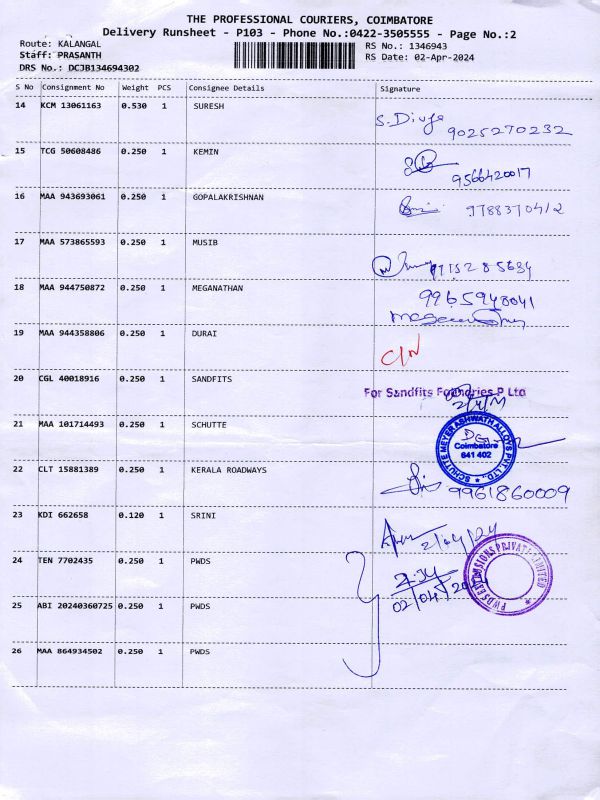 THE PROFESSIONAL COURIERS, COIMBATORE
Delivery Runsheet - P103 - Phone No.:0422-3505555 - Page No.:2
Route: KALANGAL
RS No.: 1346943
Staff: PRASANTH
RS Date: 02-Apr-2024
DRS No.: DCJB134694302
S No Consignment No Weight PCS Consignee Details Signature
14 KCM 13061163 0.530 1 SURESH
S. Divya
9025270232
15 TCG 50608486 0.250 1 KEMIN
9566420017
16 MAA 943693061 0.250 1 GOPALAKRISHNAN
9788370412
17 MAA 573865593 0.250 1 MUSIB
18 MAA 944750872 0.250 1 MEGANATHAN
9965948041
19 MAA 944358806 0.250 1 DURAI
C/N
20 CGL 40018916 0.250 1 SANDFITS
For Sandfits Foundries P Ltd
21 MAA 101714493 0.250 1 SCHUTTE
SCHUTTE MEYER ASHWATH ALLOYS PVT. LTD.
Coimbatore
641 402
22 CLT 15881389 0.250 1 KERALA ROADWAYS
9961860009
23 KDI 662658 0.120 1 SRINI
2/04/24
24 TEN 7702435 0.250 1 PWDS
02/04/2024
25 ABI 20240360725 0.250 1 PWDS
26 MAA 864934502 0.250 1 PWDS